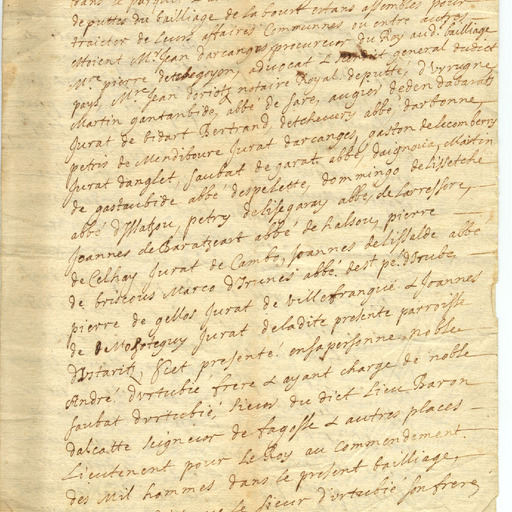 deputtes du bailliage de labourt estans assembles pour
traicter de leurs affaires Communnes ou entre autres
estoient Mre Jean darcangues procureur du Roy audt bailliage
Mre pierre detchegoyen, advocat & scindit general dudict
pays, Mre Jean doriotz notaire Royal depputté, d'Vrrugne
Martin gantanbide, abbé de sare, augier deden dabaratz
Jurat de bidart Bertrand, detcheverry abbé darbonne
petris de Mendiboure Jurat darcangues, gaston de lecomberry
Jurat danglet, saubat de garat abbé, dagnoua, Maitin
de gastanbide abbé despelette, dommingo delissetche
abbé d'Issatsou, petry delissegaray abbé de Larressore,
Joannes de Baratzeart abbé de halsou, pierre
de Celhay Jurat de Cambo, Joannes delissalde abbé
de briscous Marco d'Irunes abbé de st pé. d'Vrube,
pierre de gellos Jurat de Villefranque & Joannes
de Jurat deladite presente parroisse
Dustaritz, s'est presenté ensapersonne noble
André d'urtubie frere & ayant charge de noble
saubat durtubie sieur du dict Lieu Baron
dalcatte seigneur de fagosse & autres places
Lieutenent pour le Roy au Commendement
des Mil hommes dans le present bailliage,
le sieur d'urtubie son frere